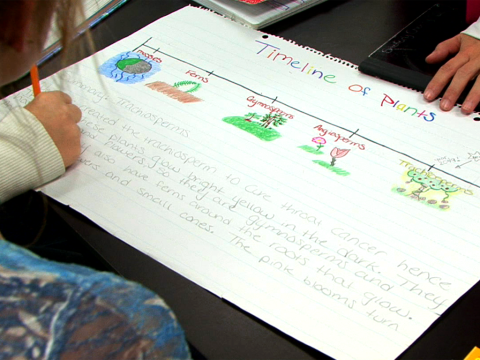 Timeline Of Plants
mosses
Ferns
Gymnosperms
Angiosperms
Trichosperms
Trichosperms
created the trachosperm to cure throat cancer hence
the plants glow bright yellow in the dark. They
flowers so they are gymnosperms and They
also have ferns around the roots that glow.
and small cones. The pink blooms turn